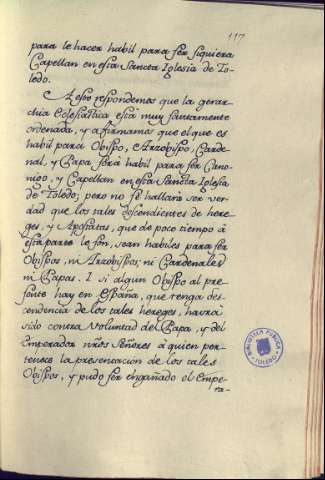 117
para le hacer habil para ser siquiera
Capellan en esta Sancta Iglesia de To-
ledo.
A esto respondemos que la gerar-
chia Eclesiastica está muy santamente
ordenada, y afirmamos que el que es
habil para Obispo, Arzobispo, Carde-
nal, y Papa será habil para ser Cano-
nigo, y Capellan en esta Sancta Iglesia
de Toledo; pero no se hallará ser ver-
dad que los tales descendientes de here-
ges, y Apostatas, que de poco tiempo á
esta parte lo son, sean habiles para ser
Obispos, ni Arzobispos, ni Cardenales
ni Papas. I si algun Obispo al pre-
sente hay en España, que tenga des-
cendencia de los tales hereges, havrá
sido contra voluntad del Papa, y del
Emperador nr̃os Señores á quien per-
tenece la presentacion de los tales
Obispos, y pudo ser engañado el Empe-
ra-
BIBLIOTECA PUBLICA
TOLEDO